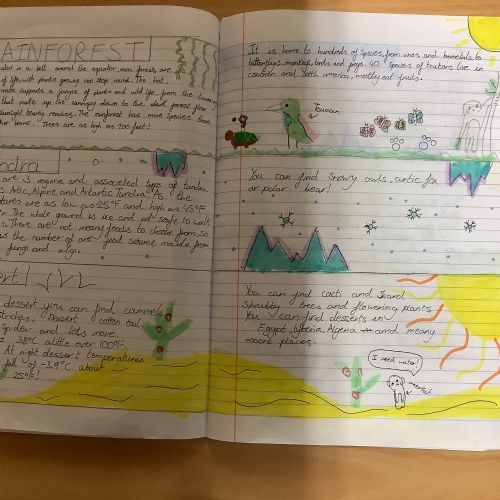 RAINFOREST
in a belt around the equator, rain forests are
of life, with plants growing non stop round. The hot
supports a jungle of plants and wild life, from the
that make up the canopy down to the dark forest floor
sunlight hearly reaches. The rainforest has more species than
other biome. Trees are as high as 200 feet!
ndra
are 3 regins and associated types of tundra
Artic, Alpine and Antartic Tundra. As the
tures are as low as -25°F and high as 45°F
The whole ground is ice and not safe to walk
There are not meany foods to choose from, so
is the number of one food source made from
fungi and algi.
ert
dessert you can find cammels
triches, Dessert cotton tail
Spider and lots more
38°C alittle over 100°F
At night dessert temperatures
fall of -3.9°C about
25°F!
It is home to hundreds of species, from vines and to
butterflays, monkeys, birds and frogs. 40 species of toutans live in
centarln and south america, mostly eat fruits.
Toucan
You can find snowy owls, arctic fox
or polar bear!
You can find cacti and
shrubby trees and flowering plants
You can find desserts in
Egypt, Algeria and meany
moore places.
I need water!
meerkat